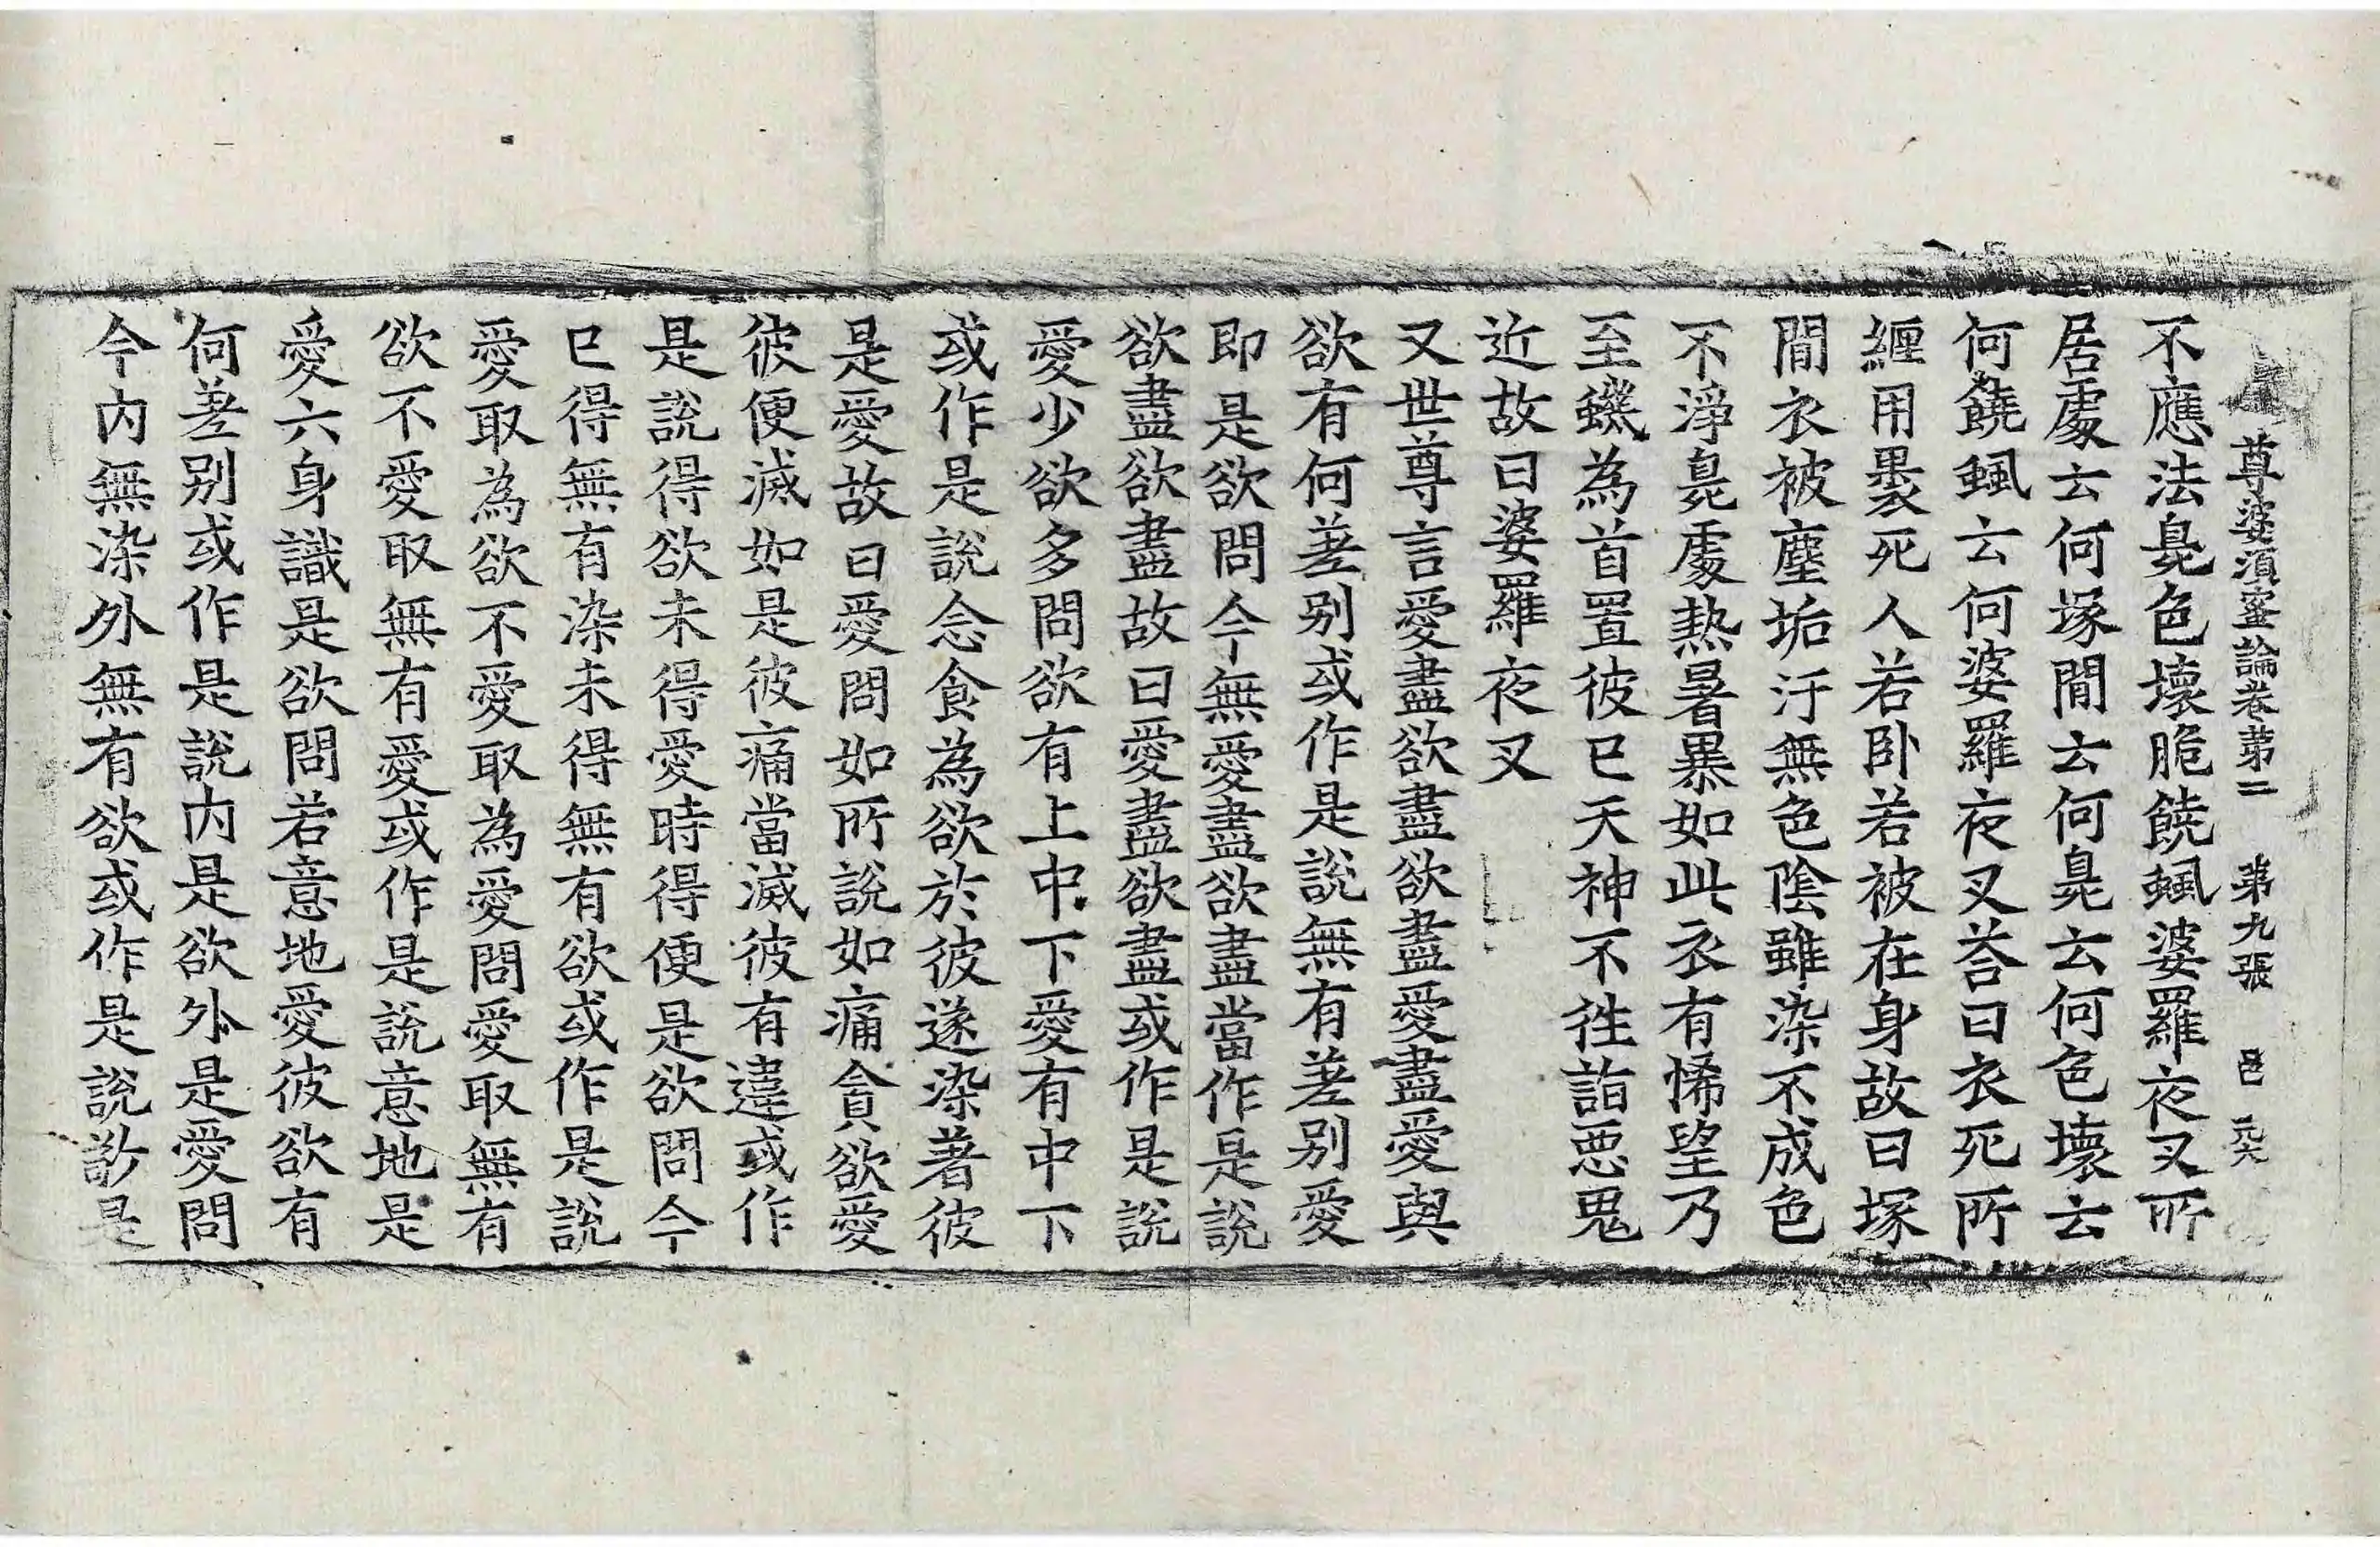 尊婆須蜜論卷第二　第九張　邑
不應法臰色壞脆饒䖝婆羅夜叉所
居處云何塚閒云何臰云何色壞云
何饒䖝云何婆羅夜叉荅曰衣死所
纒用褁死人若卧若被在身故曰塚
閒衣被塵垢汙無色陰雖染不成色
不淨臰處熱暑暴如此衣有悕望乃
至蟣為首置彼已天神不徃詣惡鬼
近故曰婆羅夜叉
又世尊言愛盡欲盡欲盡愛盡愛與
欲有何差别或作是說無有差别愛
即是欲問今無愛盡欲盡當作是說
欲盡欲盡故曰愛盡欲盡或作是說
愛少欲多問欲有上中下愛有中下
或作是說念食為欲於彼遂染著彼
是愛故曰愛問如所說如痛貪欲愛
彼便滅如是彼痛當滅彼有違或作
是說得欲未得愛時得便是欲問今
已得無有染未得無有欲或作是說
愛取為欲不愛取為愛問愛取無有
欲不愛取無有愛或作是說意地是
愛六身識是欲問若意地愛彼欲有
何差别或作是說內是欲外是愛問
今內無染外無有欲或作是說㪽是